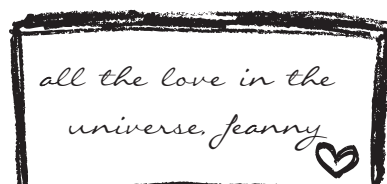 all the love in the
universe, Jeanny